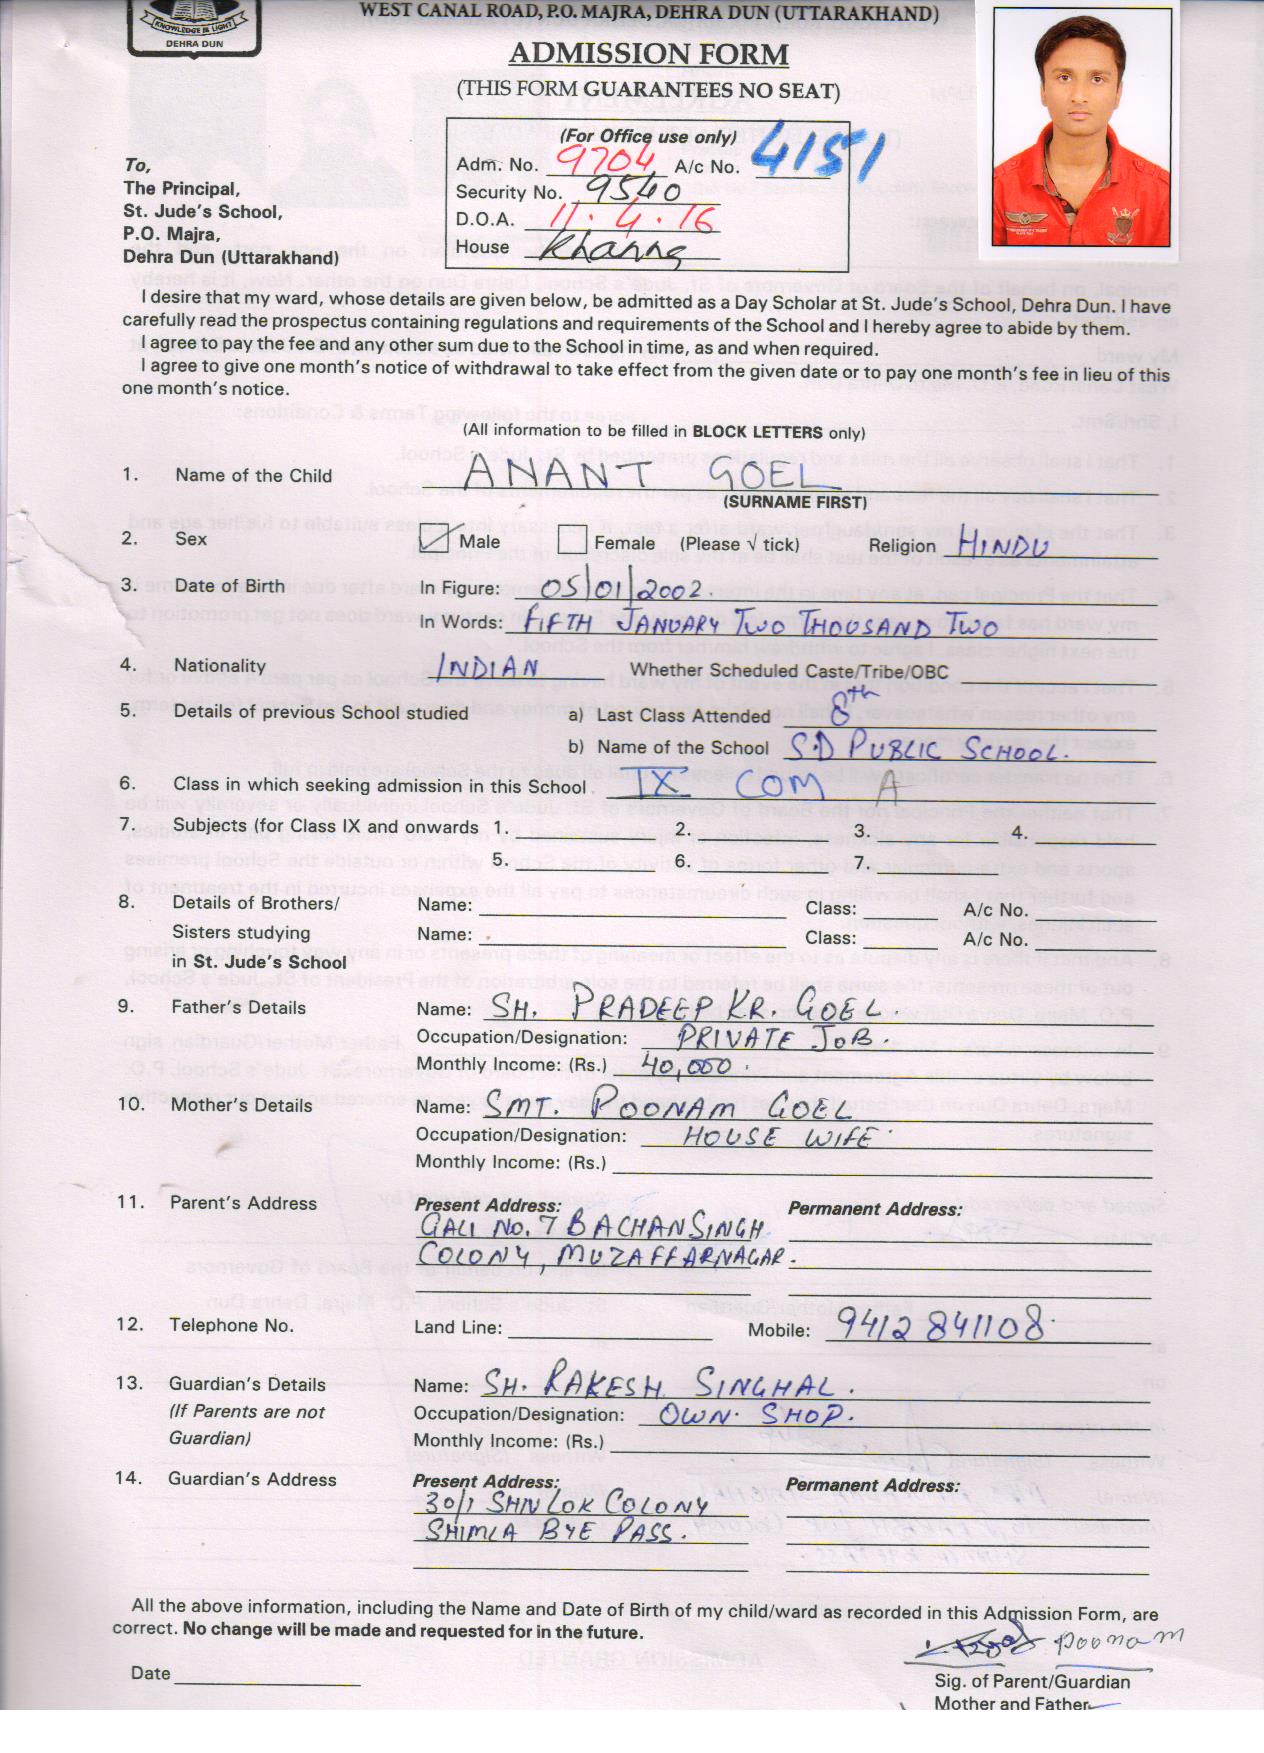 KNOWLEDGE IS LIGHT
DEHRA DUN
WEST CANAL ROAD, P.O. MAJRA, DEHRA DUN (UTTARAKHAND)
ADMISSION FORM
(THIS FORM GUARANTEES NO SEAT)
(For Office use only)
Adm. No. 9704 A/c No. 4151
Security No. 9540
D.O.A. 11.4.16
House Khanna
To,
The Principal,
St. Jude's School,
P.O. Majra,
Dehra Dun (Uttarakhand)
I desire that my ward, whose details are given below, be admitted as a Day Scholar at St. Jude's School, Dehra Dun. I have
carefully read the prospectus containing regulations and requirements of the School and I hereby agree to abide by them.
I agree to pay the fee and any other sum due to the School in time, as and when required.
I agree to give one month's notice of withdrawal to take effect from the given date or to pay one month's fee in lieu of this
one month's notice.
(All information to be filled in BLOCK LETTERS only)
1. Name of the Child ANANT GOEL
(SURNAME FIRST)
2. Sex Male Female (Please √ tick) Religion HINDU
3. Date of Birth In Figure: 05/01/2002.
In Words: FIFTH JANUARY TWO THOUSAND TWO
4. Nationality INDIAN Whether Scheduled Caste/Tribe/OBC
5. Details of previous School studied a) Last Class Attended 8th
b) Name of the School S.D PUBLIC SCHOOL.
6. Class in which seeking admission in this School IX COM A
7. Subjects (for Class IX and onwards 1. 2. 3. 4.
5. 6. 7.
8. Details of Brothers/ Name: Class: A/c No.
Sisters studying Name: Class: A/c No.
in St. Jude's School
9. Father's Details Name: SH. PRADEEP KR. GOEL
Occupation/Designation: PRIVATE JOB.
Monthly Income: (Rs.) 40,000.
10. Mother's Details Name: SMT. POONAM GOEL
Occupation/Designation: HOUSE WIFE
Monthly Income: (Rs.)
11. Parent's Address Present Address: Permanent Address:
GALI NO. 7 BACHAN SINGH
COLONY, MUZAFFARNAGAR.
12. Telephone No. Land Line: Mobile: 9412841108
13. Guardian's Details Name: SH. RAKESH SINGHAL.
(If Parents are not Occupation/Designation: OWN SHOP.
Guardian) Monthly Income: (Rs.)
14. Guardian's Address Present Address: Permanent Address:
30/1 SHIV LOK COLONY
SHIMLA BYE PASS.
All the above information, including the Name and Date of Birth of my child/ward as recorded in this Admission Form, are
correct. No change will be made and requested for in the future.
Poonam
Date
Sig. of Parent/Guardian
Mother and Father